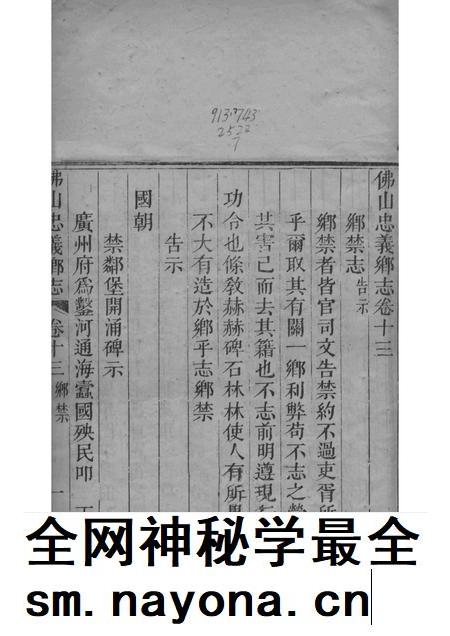 913.7743
2522
7
佛山忠義鄉志卷十三
鄉禁志 告示
鄉禁者皆官司文告禁約不過吏胥所
乎爾取其有關一鄉利弊苟不志之
其害己而去其籍也不志前明遵現行
功令也條敎赫赫碑石林林使人有所
不大有造於鄉乎志鄉禁
告示
國朝
禁鄰堡開涌碑示
廣州府爲鑿河通海蠹國殃民叩
佛山忠義鄉志 卷十三 鄉禁 一
全网神秘学最全
sm.nayona.cn